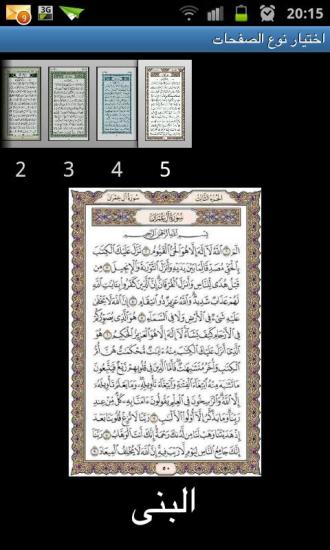 9 3G 20:15
اختيار نوع الصفحات
2 3 4 5
الجزء الثالث سورة آل عمران
سورة آل عمران
بسم الله الرحمن الرحيم
الٓمٓ ١ ٱللَّهُ لَآ إِلَٰهَ إِلَّا هُوَ ٱلْحَىُّ ٱلْقَيُّومُ ٢ نَزَّلَ عَلَيْكَ ٱلْكِتَٰبَ
بِٱلْحَقِّ مُصَدِّقًا لِّمَا بَيْنَ يَدَيْهِ وَأَنزَلَ ٱلتَّوْرَىٰةَ وَٱلْإِنجِيلَ ٣
مِن قَبْلُ هُدًى لِّلنَّاسِ وَأَنزَلَ ٱلْفُرْقَانَ إِنَّ ٱلَّذِينَ كَفَرُوا۟ بِـَٔايَٰتِ ٱللَّهِ
لَهُمْ عَذَابٌ شَدِيدٌ وَٱللَّهُ عَزِيزٌ ذُو ٱنتِقَامٍ ٤ إِنَّ ٱللَّهَ لَا يَخْفَىٰ
عَلَيْهِ شَىْءٌ فِى ٱلْأَرْضِ وَلَا فِى ٱلسَّمَآءِ ٥ هُوَ ٱلَّذِى يُصَوِّرُكُمْ
فِى ٱلْأَرْحَامِ كَيْفَ يَشَآءُ لَآ إِلَٰهَ إِلَّا هُوَ ٱلْعَزِيزُ ٱلْحَكِيمُ ٦ هُوَ
ٱلَّذِىٓ أَنزَلَ عَلَيْكَ ٱلْكِتَٰبَ مِنْهُ ءَايَٰتٌ مُّحْكَمَٰتٌ هُنَّ أُمُّ
ٱلْكِتَٰبِ وَأُخَرُ مُتَشَٰبِهَٰتٌ فَأَمَّا ٱلَّذِينَ فِى قُلُوبِهِمْ زَيْغٌ فَيَتَّبِعُونَ
مَا تَشَٰبَهَ مِنْهُ ٱبْتِغَآءَ ٱلْفِتْنَةِ وَٱبْتِغَآءَ تَأْوِيلِهِۦ وَمَا يَعْلَمُ تَأْوِيلَهُۥٓ
إِلَّا ٱللَّهُ وَٱلرَّٰسِخُونَ فِى ٱلْعِلْمِ يَقُولُونَ ءَامَنَّا بِهِۦ كُلٌّ مِّنْ عِندِ
رَبِّنَا وَمَا يَذَّكَّرُ إِلَّآ أُو۟لُوا۟ ٱلْأَلْبَٰبِ ٧ رَبَّنَا لَا تُزِغْ قُلُوبَنَا بَعْدَ
إِذْ هَدَيْتَنَا وَهَبْ لَنَا مِن لَّدُنكَ رَحْمَةً إِنَّكَ أَنتَ ٱلْوَهَّابُ ٨ رَبَّنَآ
إِنَّكَ جَامِعُ ٱلنَّاسِ لِيَوْمٍ لَّا رَيْبَ فِيهِ إِنَّ ٱللَّهَ لَا يُخْلِفُ ٱلْمِيعَادَ ٩
٥٠
البنى